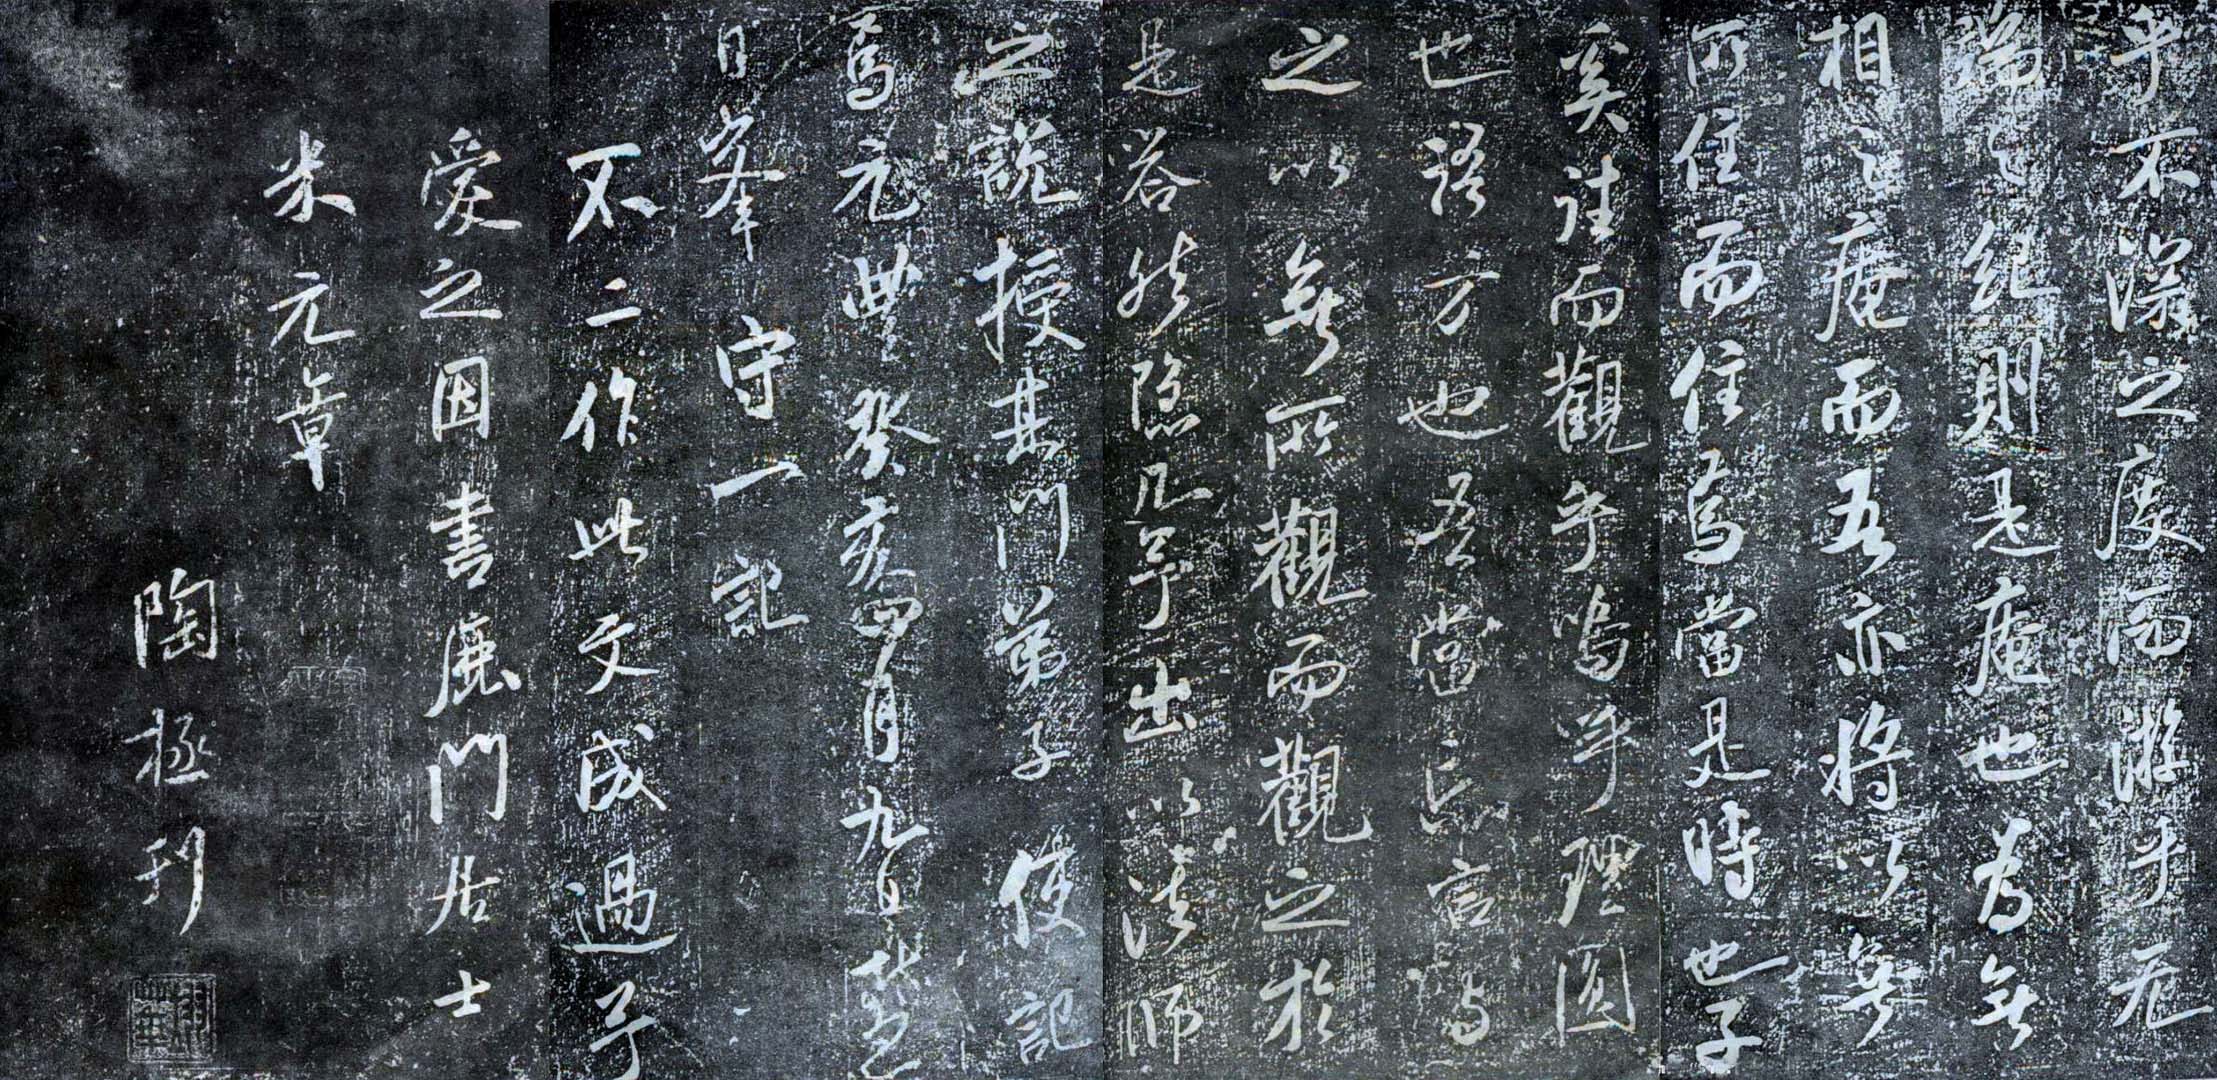 乎不深之度而游乎无
端之紀則是庵也為無
相之庵而吾亦將以無
所住而住焉當是時也子
奚往而觀乎嗚呼理圓
也語方也吾當忘言與
之以無所觀而觀之於
是嗒然隱几予出以法師
之說授其門弟子使記
焉元豐癸亥四月九日慧
日峯守一記
不二作此文成過予
愛之因書鹿門居士
米元章
陶拯刊